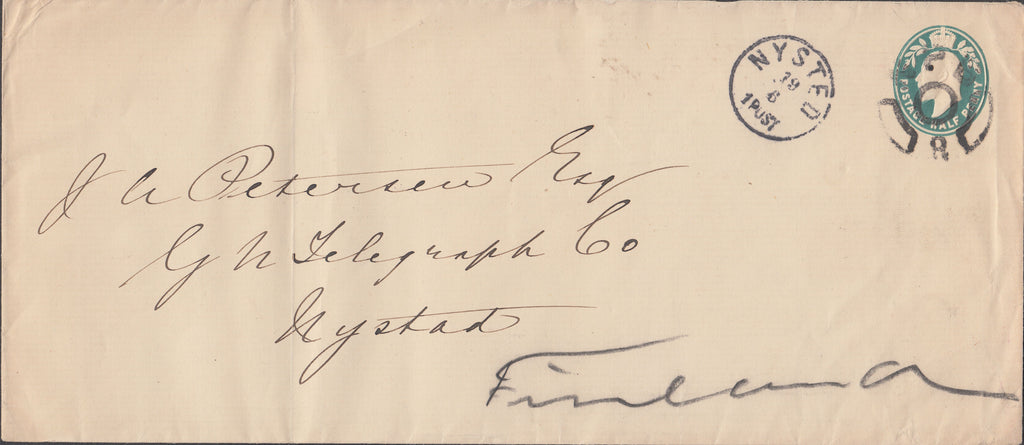 NYSTED
19
6
1 POST
POSTAGE HALF PENNY
8
J A Petersen Esq
G N Telegraph Co
Nystad
Finland